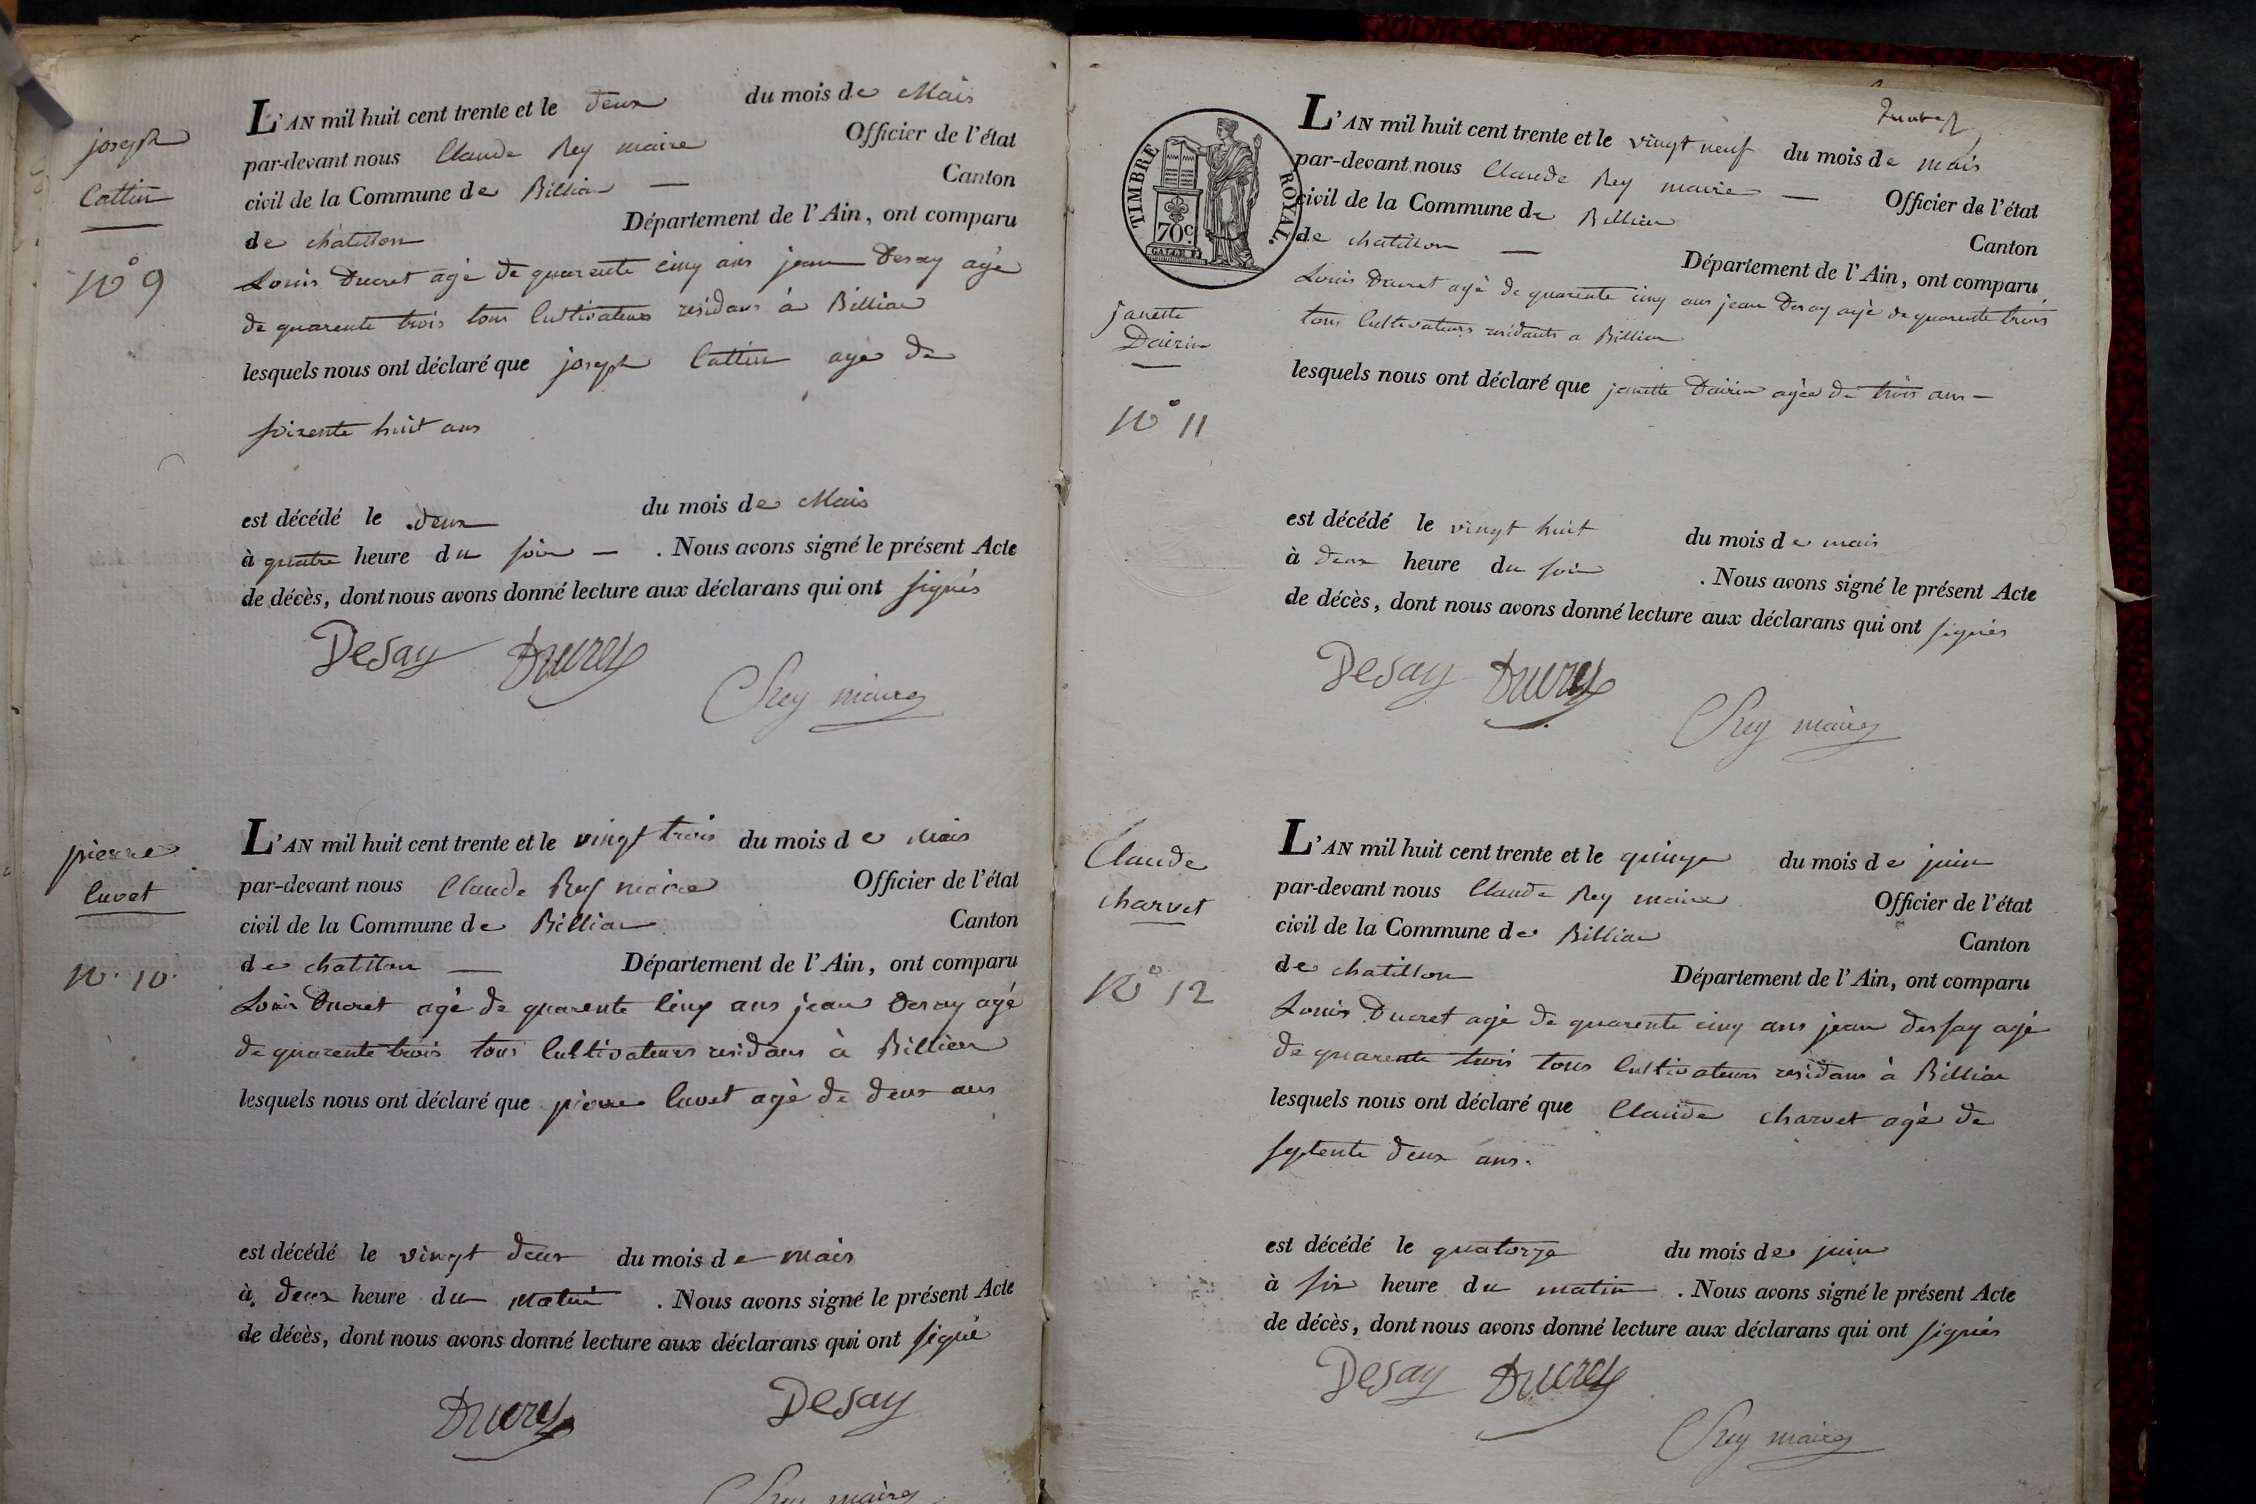 joseph
Cattin
N° 9
L'AN mil huit cent trente et le deux du mois de Mais
par-devant nous Claude Rey maire Officier de l'état
civil de la Commune de Billiat — Canton
de chatillon Département de l'Ain, ont comparu
Louis Ducret agé de quarente cinq ans jean Desay agé
de quarente trois tous Cultivateurs residans à Billiat
lesquels nous ont déclaré que joseph Cattin agé de
soixente huit ans
est décédé le deux du mois de Mais
à quatre heure du soir — . Nous avons signé le présent Acte
de décès, dont nous avons donné lecture aux déclarans qui ont signés
Desay Ducret
C Rey maire
pierre
Cuvet
N° 10.
L'AN mil huit cent trente et le vingt trois du mois de Mais
par-devant nous Claude Rey maire Officier de l'état
civil de la Commune de Billiat Canton
de chatillon — Département de l'Ain, ont comparu
Louis Ducret agé de quarente cinq ans jean Desay agé
de quarente trois tous Cultivateurs residans à Billiat
lesquels nous ont déclaré que pierre Cuvet agé de deux ans
est décédé le vingt deux du mois de mais
à deux heure du matin . Nous avons signé le présent Acte
de décès, dont nous avons donné lecture aux déclarans qui ont signé
Ducret Desay
C Rey maire
TIMBRE ROYAL.
70 c.
janette
Dairin
N° 11
L'AN mil huit cent trente et le vingt neuf du mois de mais
par-devant nous Claude Rey maire — Officier de l'état
civil de la Commune de Billiat Canton
de chatillon — Département de l'Ain, ont comparu
Louis Ducret agé de quarente cinq ans jean Desay agé de quarente trois
tous Cultivateurs residants a Billiat
lesquels nous ont déclaré que janette Dairin agée de trois ans —
est décédé le vingt huit du mois de mais
à deux heure du soir . Nous avons signé le présent Acte
de décès, dont nous avons donné lecture aux déclarans qui ont signés
Desay Ducret
C Rey maire
Claude
charvet
N° 12
L'AN mil huit cent trente et le quinze du mois de juin
par-devant nous Claude Rey maire Officier de l'état
civil de la Commune de Billiat Canton
de chatillon Département de l'Ain, ont comparu
Louis Ducret agé de quarente cinq ans jean dessay agé
de quarente trois tous Cultivateurs residans à Billiat
lesquels nous ont déclaré que Claude charvet agé de
septente deux ans.
est décédé le quatorze du mois de juin
à six heure du matin . Nous avons signé le présent Acte
de décès, dont nous avons donné lecture aux déclarans qui ont signés
Desay Ducret
C Rey maire